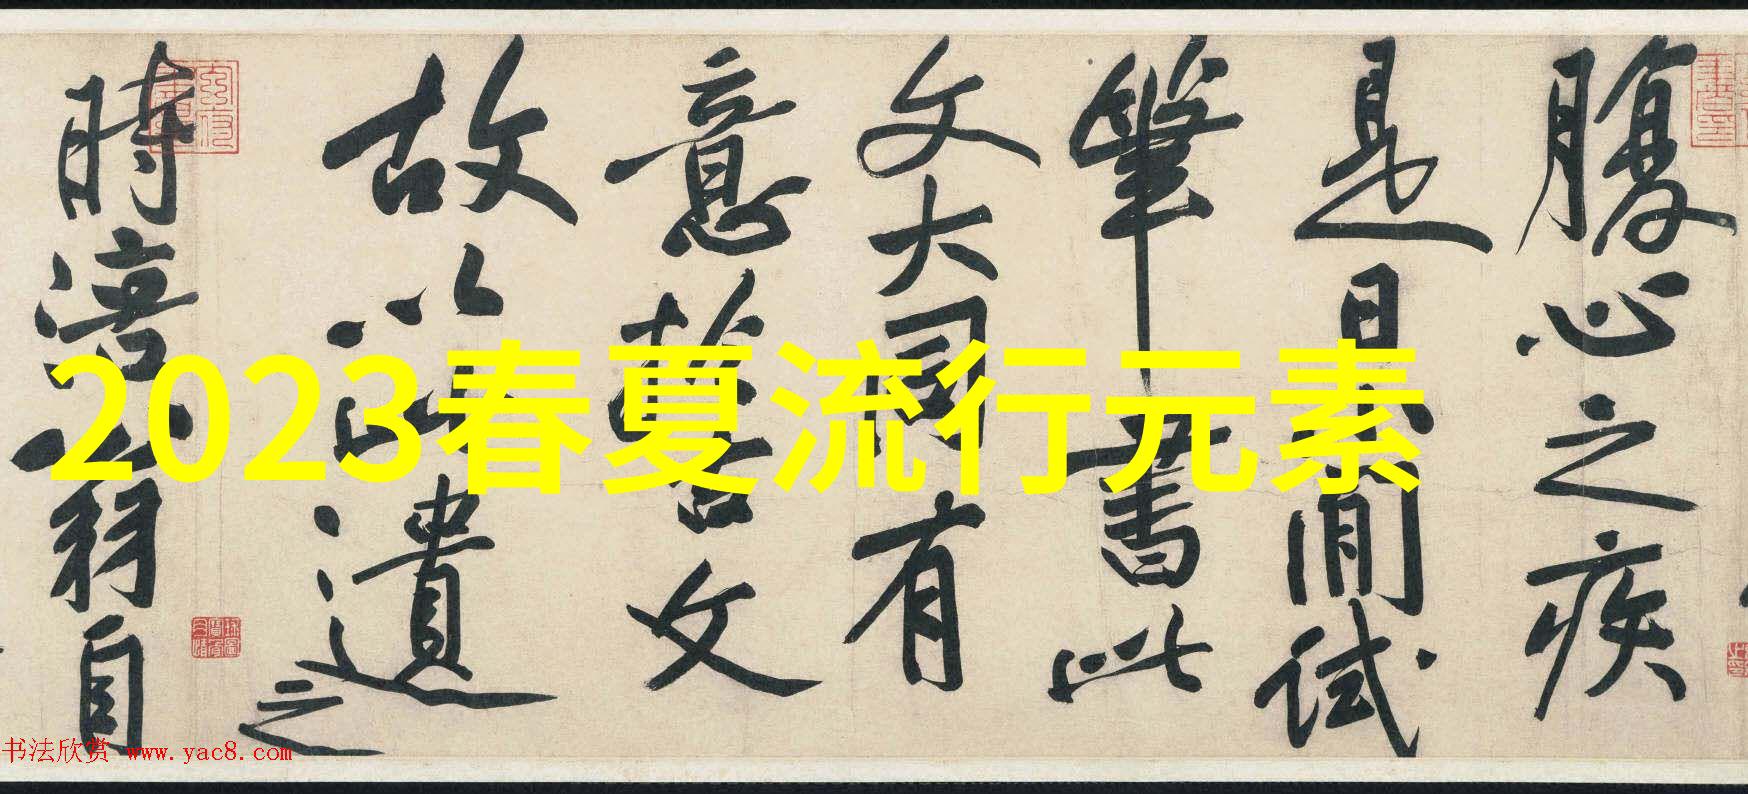 2023春夏流行元素
腹心之疾
是日小閒試
筆書此
文大同有
意於古文
故以此遺之
時涪翁自
书法欣赏 www.yac8.com